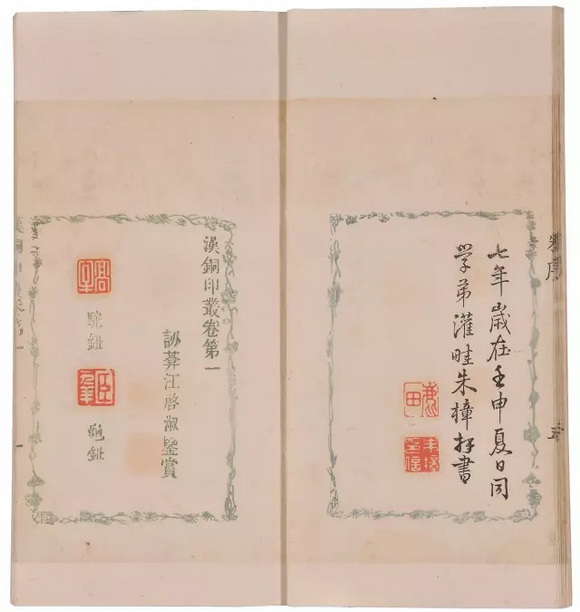 七年歲在壬申夏日同
学弟灌畦朱樟拜書
漢銅印叢卷第一
訒葊汪啓淑鑒賞
駝鈕
龜鈕